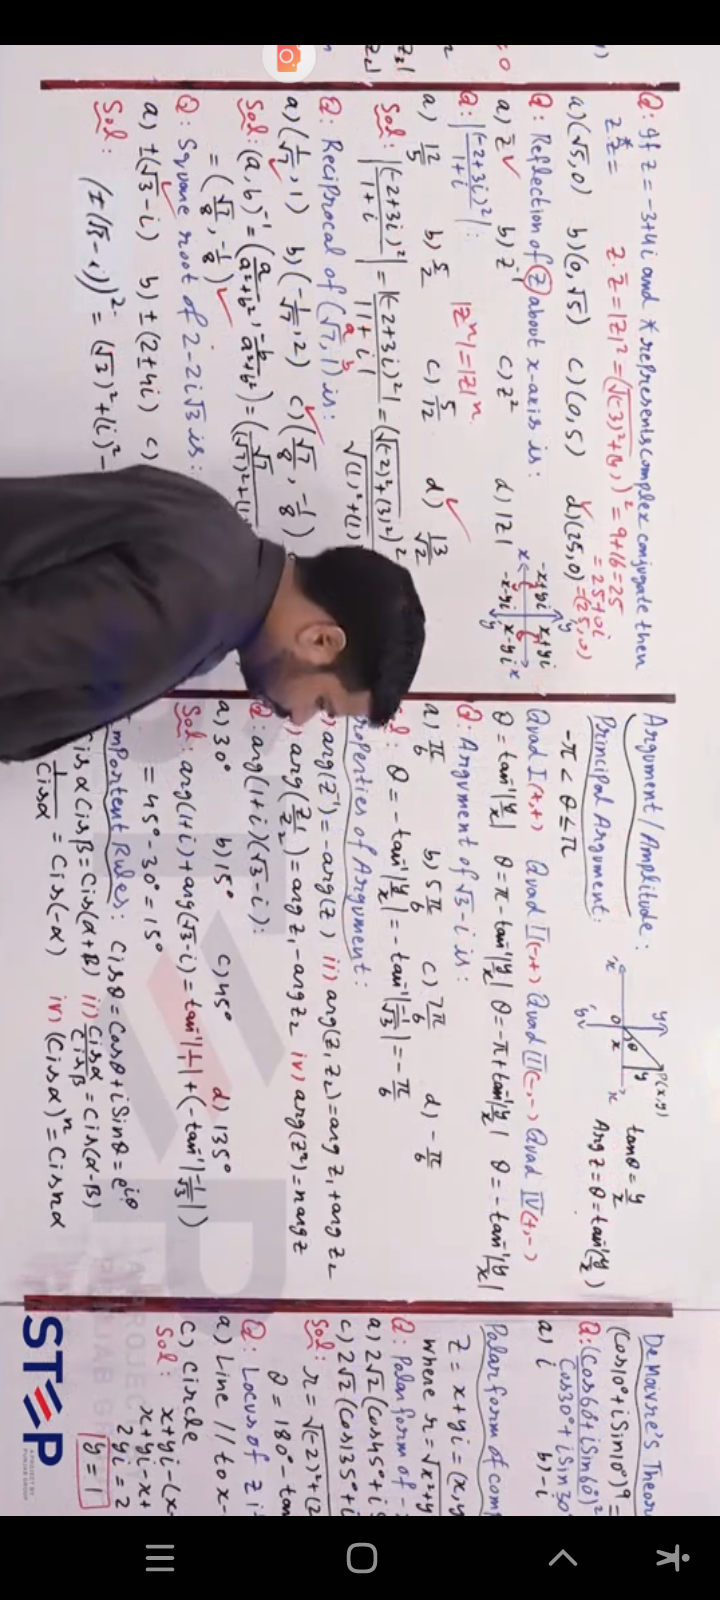 Q: If z = -3+4i and * represents complex conjugate then
z.z* = z.z̄ = |z|² = (√(-3)²+(4)²)² = 9+16=25
= 25+0i
= (25,0)
a) (√5,0) b) (0,√5) c) (0,5) d) (25,0)
Q: Reflection of z about x-axis is:
a) z̄ b) z⁻¹ c) z² d) |z|
-x+yi x+yi
-x-yi x-yi
Q: |(-2+3i)²/1+i| : |zⁿ| = |z|ⁿ
a) 12/5 b) 5/2 c) 5/12 d) 13/√2
Sol: |(-2+3i)²/1+i| = |(-2+3i)²|/|1+i| = (√(-2)²+(3)²)²/√(1)²+(1)
Q: Reciprocal of (√7, 1) is:
a) (1/√7, 1) b) (-1/√7, 2) c) (√7/8, -1/8)
Sol: (a,b)⁻¹ = (a/a²+b², -b/a²+b²) = (√7/(√7)²+(1
= (√7/8, -1/8)
Q: Square root of 2-2i√3 is:
a) ±(√3-i) b) ±(2±4i) c)
Sol: (±(√3-i))² = (√3)²+(i)²-
Argument/Amplitude:
P(x,y)
tanθ = y/x
Arg z = θ = tan⁻¹(y/x)
Principal Argument:
-π < θ ≤ π
Quad I(+,+) Quad II(-,+) Quad III(-,-) Quad IV(+,-)
θ = tan⁻¹|y/x| θ = π - tan⁻¹|y/x| θ = -π + tan⁻¹|y/x| θ = -tan⁻¹|y/x|
Q: Argument of √3-i is:
a) π/6 b) 5π/6 c) 7π/6 d) -π/6
θ = -tan⁻¹|y/x| = -tan⁻¹|-1/√3| = -π/6
roperties of Argument:
arg(z⁻¹) = -arg(z) ii) arg(z₁z₂) = arg z₁ + arg z₂
arg(z₁/z₂) = arg z₁ - arg z₂ iv) arg(zⁿ) = n arg z
Q: arg(1+i)(√3-i):
a) 30° b) 15° c) 45° d) 135°
Sol: arg(1+i) + arg(√3-i) = tan⁻¹|1/1| + (-tan⁻¹|-1/√3|)
= 45°-30° = 15°
mportent Rules: Cisθ = Cosθ + iSinθ = e^iθ
Cisα Cisβ = Cis(α+β) ii) Cisα/Cisβ = Cis(α-β)
1/Cisα = Cis(-α) iv) (Cisα)ⁿ = Cisnα
De Moivre's Theor
(Cos10°+iSin10°)⁹ =
Q: (Cos60°+iSin60°)²/Cos30°+iSin30°
a) i b) -i
Polar form of comp
z = x+yi = (x,y
where r = √x²+y
Q: Polar form of -
a) 2√2 (Cos45°+i
c) 2√2 (Cos135°+i
Sol: r = √(-2)²+(2
θ = 180° - tan
Q: Locus of z i
a) Line // to x-
c) Circle
Sol: x+yi-(x-
x+yi-x+
2yi = 2
y = 1
STEP